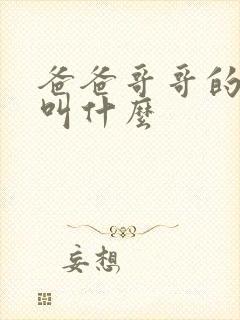 爸爸哥哥的
叫什麼
妄想